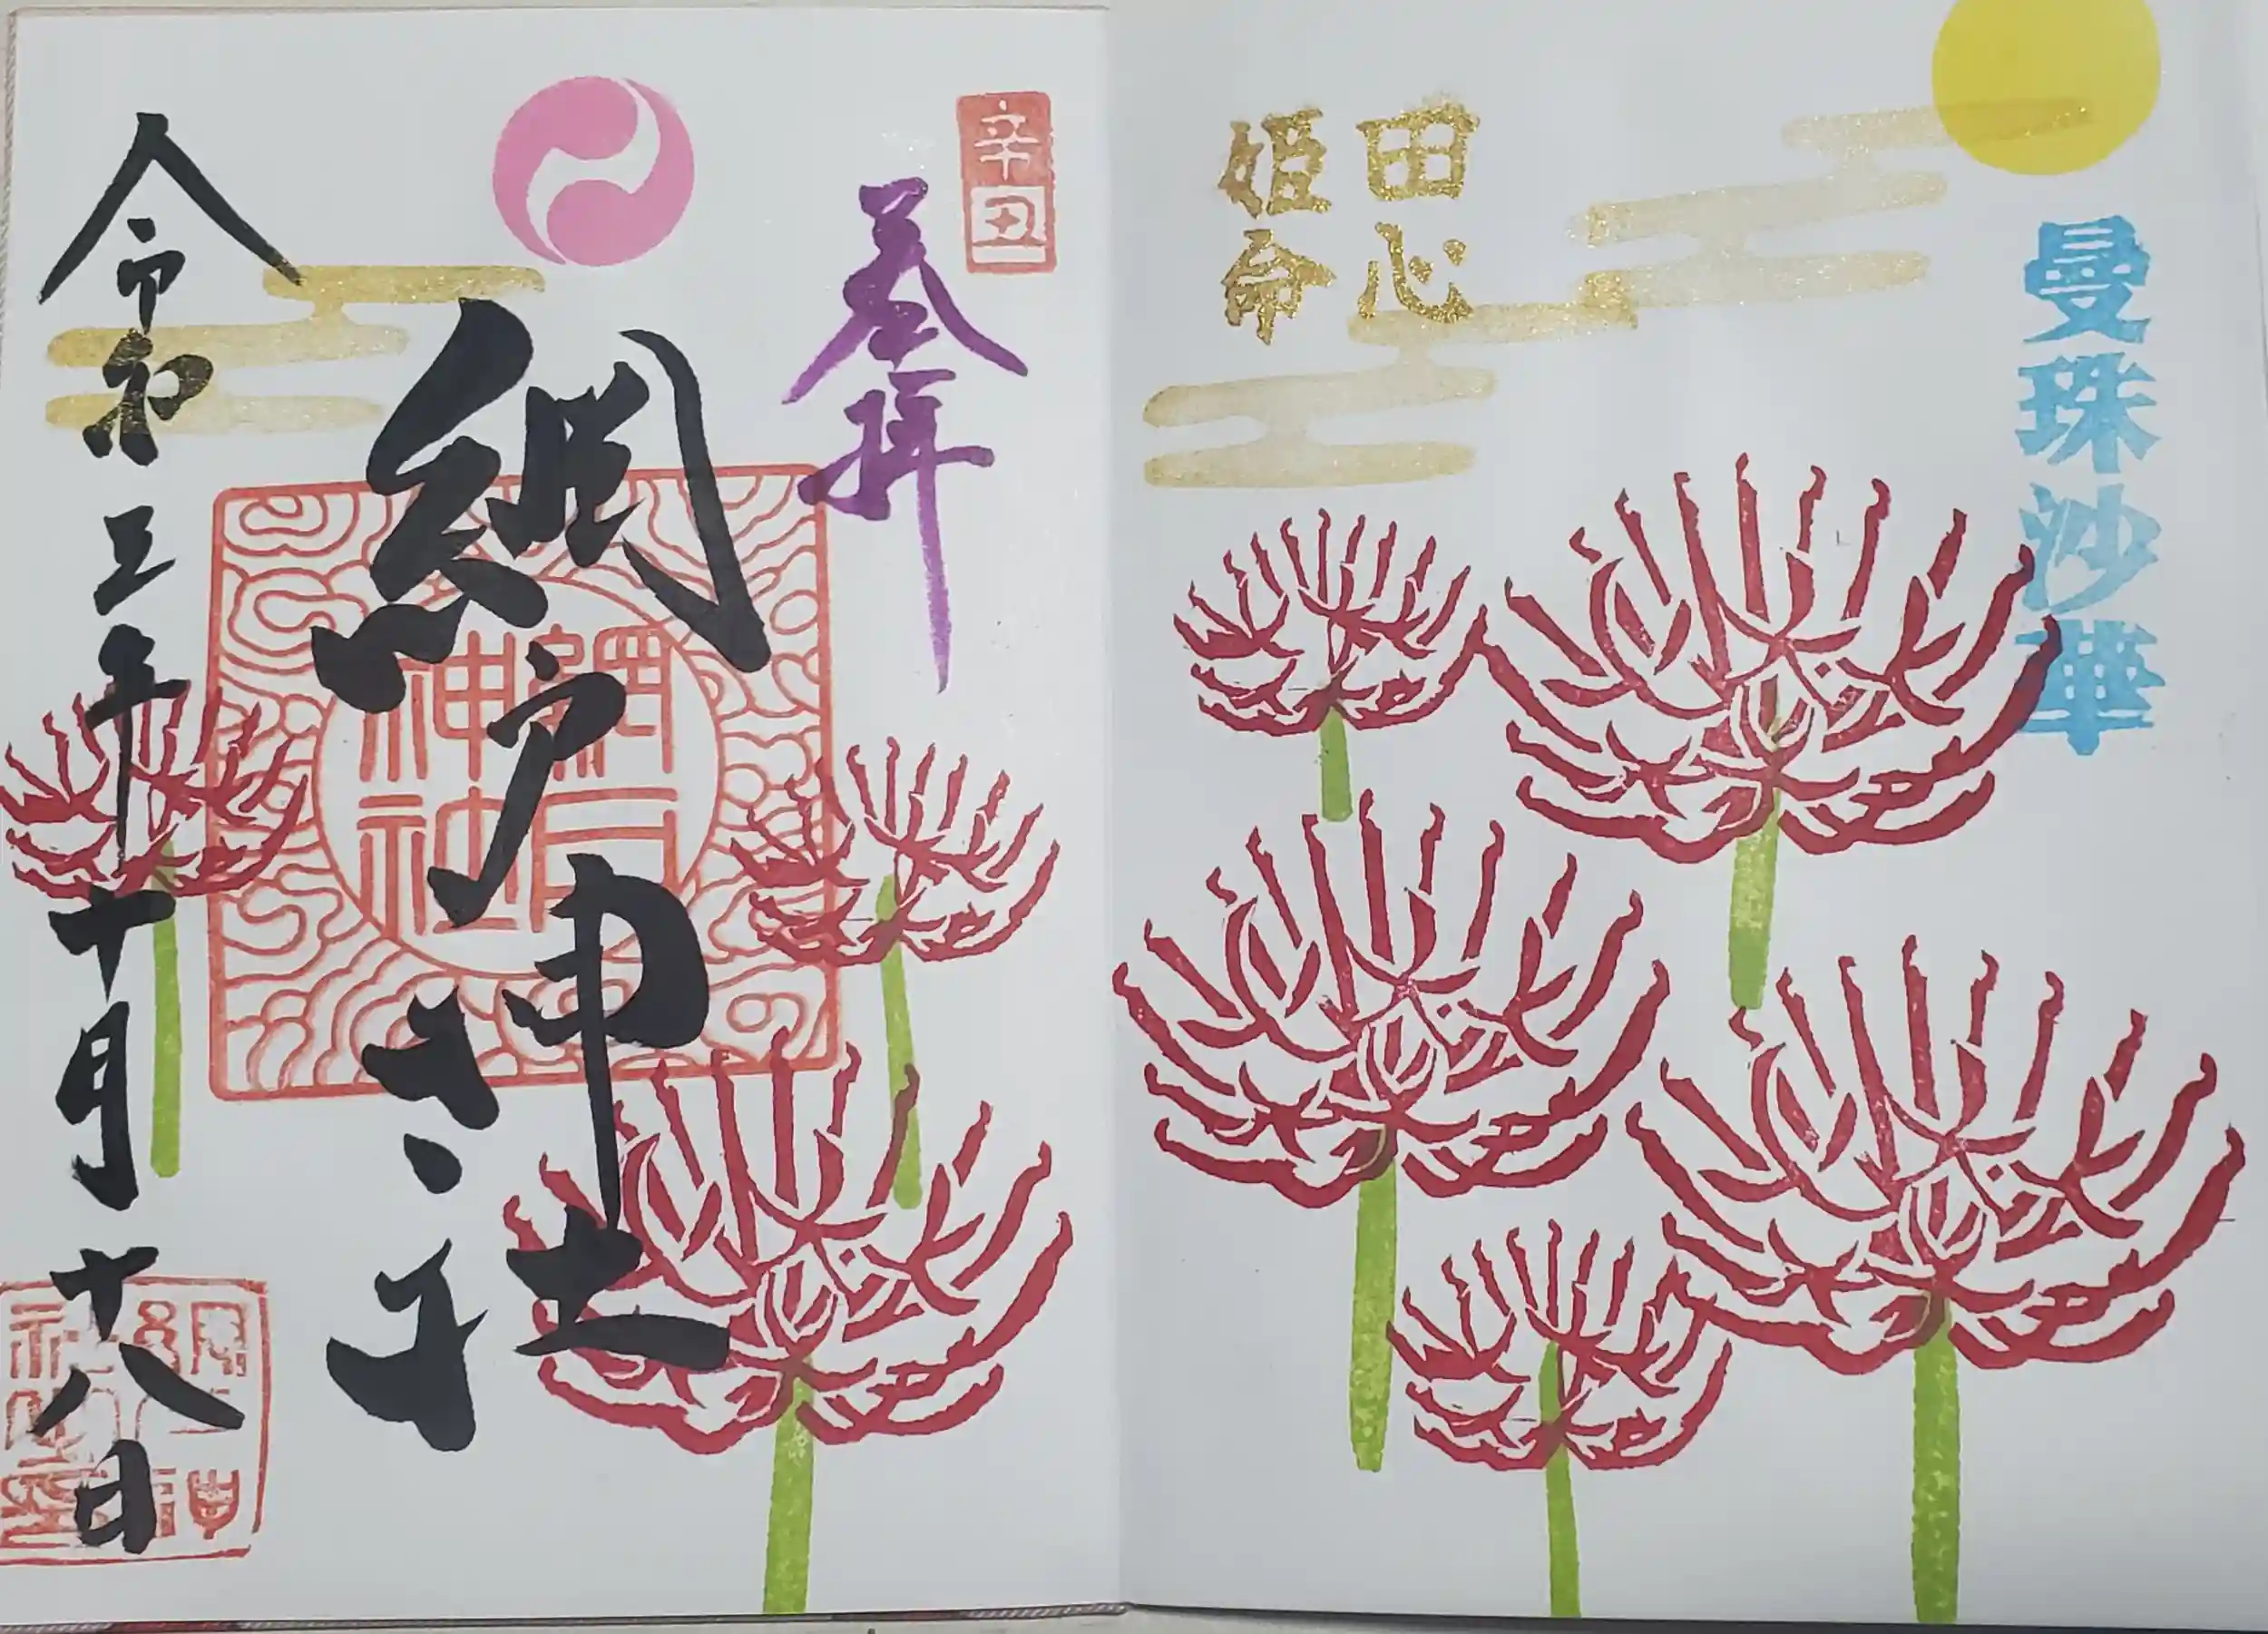 曼珠沙華
田心
姫命
辛丑
参拝
網戸神社
網戸
神社
令和三年十月十八日